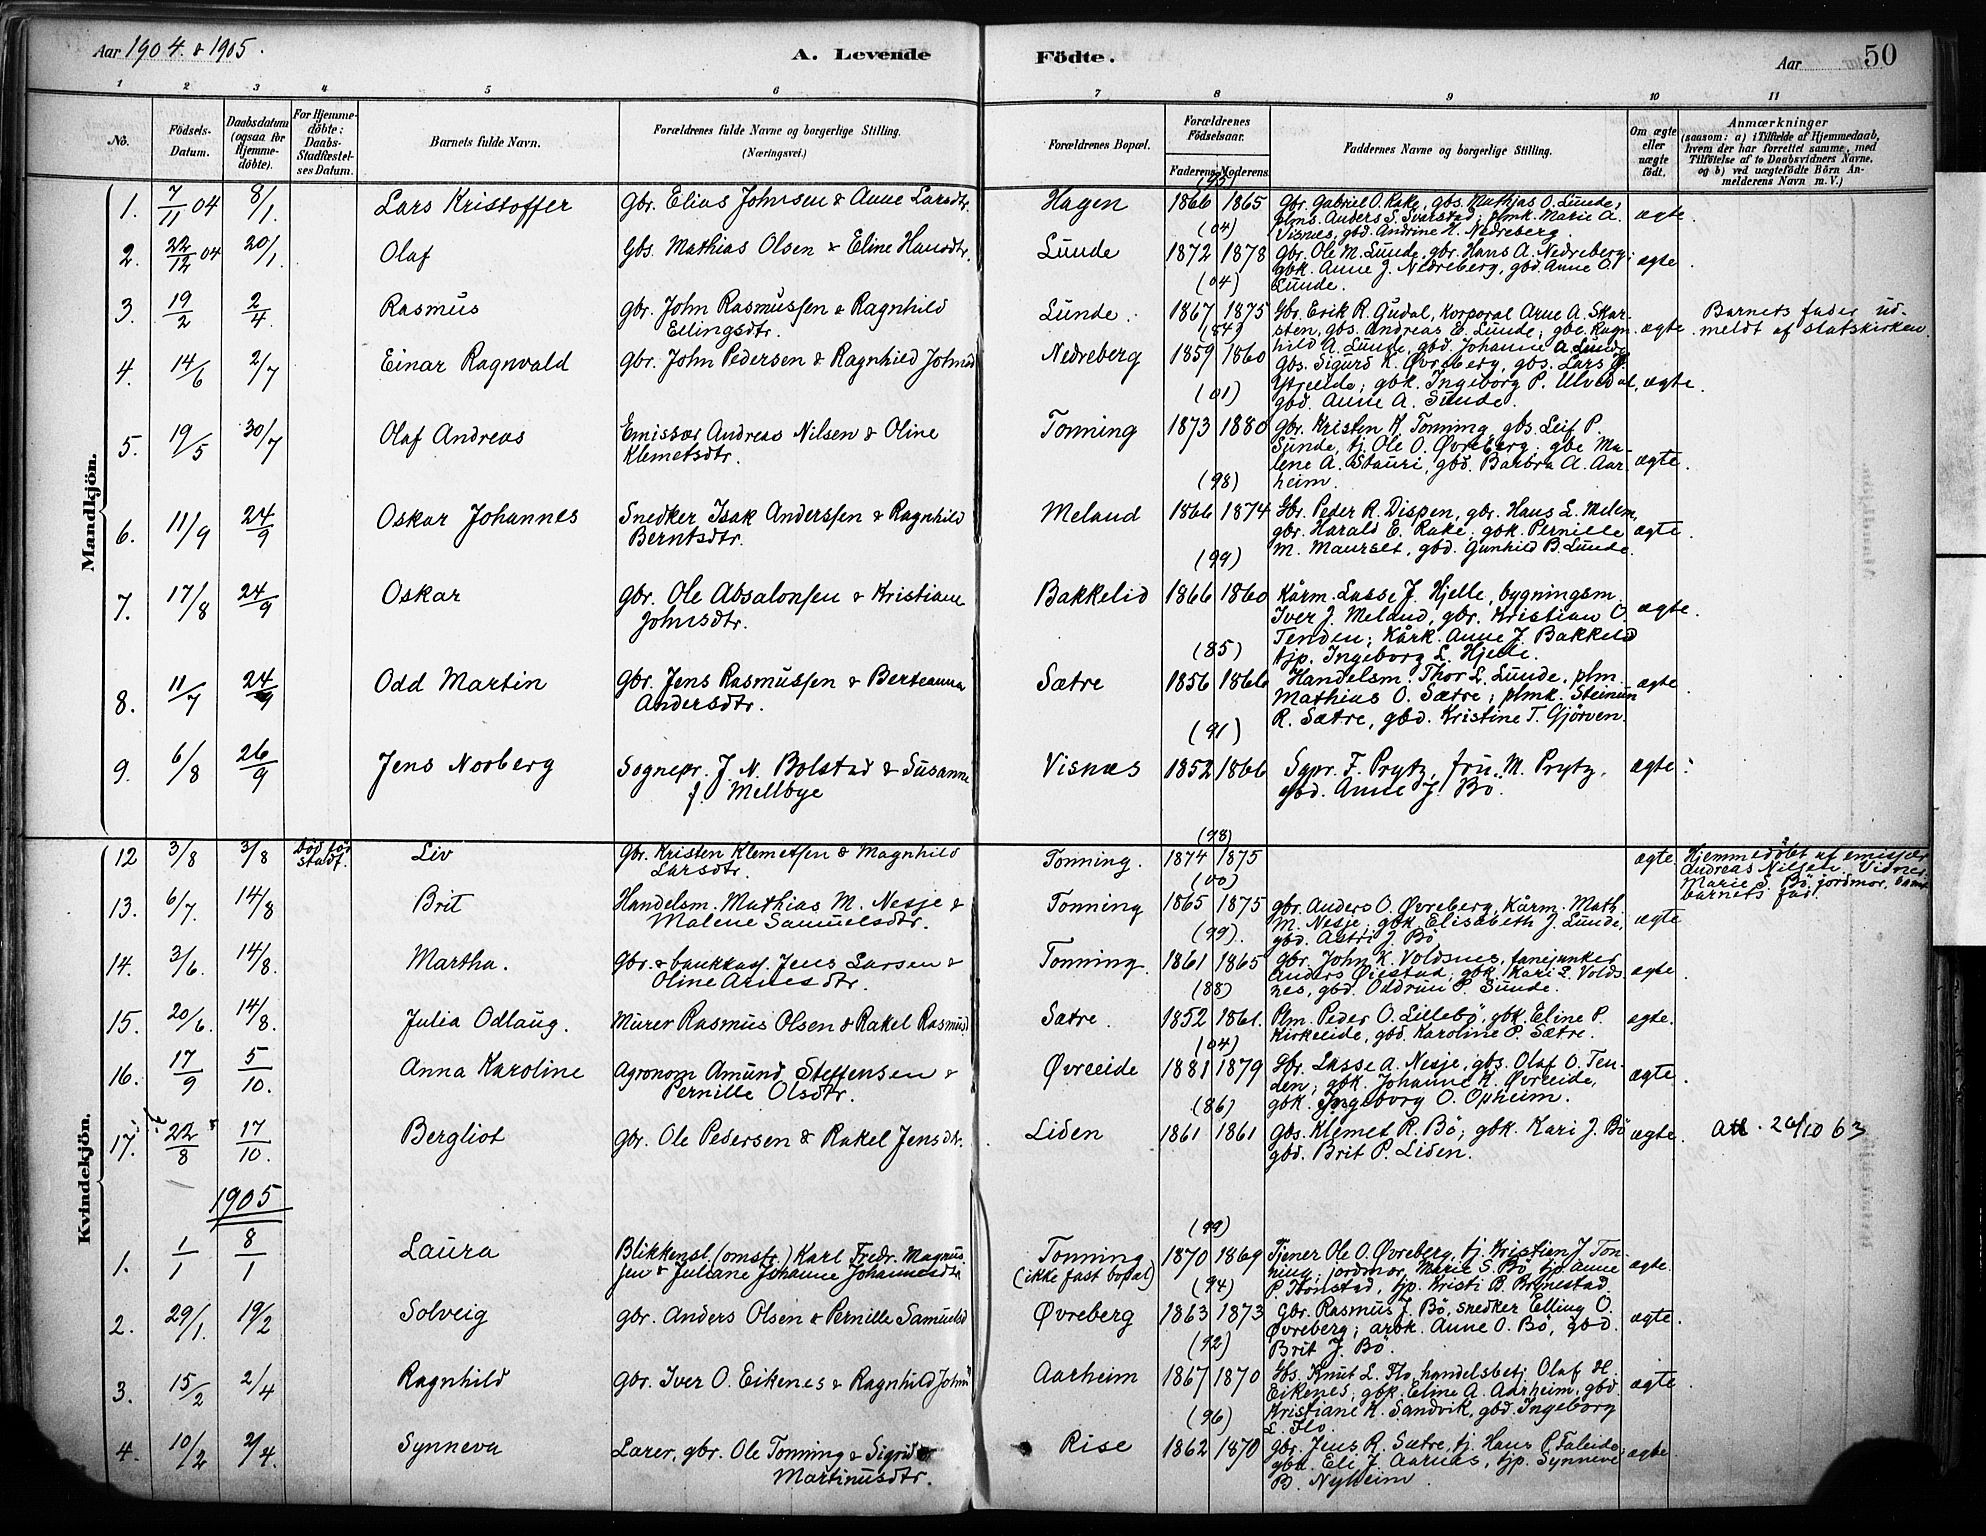 Aar 1904 & 1905.
A. Levende
Födte.
Aar
50
1 2 3 4 5 6 7 8 9 10 11
No.
Födsels-
Datum.
Daabsdatum
(ogsaa for
Hjemme-
döbte).
For Hjemme-
döbte:
Daabs-
Stadfæstel-
ses Datum.
Barnets fulde Navn.
Forældrenes fulde Navne og borgerlige Stilling.
(Næringsvei.)
Forældrenes Bopæl.
Forældrenes
Födselsaar.
Faderens Moderens
Faddernes Navne og borgerlige Stilling.
Om ægte
eller
uægte
födt.
Anmærkninger
(saasom: a) i Tilfælde af Hjemmedaab,
hvem der har forrettet samme, med
Tilföielse af to Daabsvidners Navne,
og b) ved uægtefödte Börn An-
melderens Navn m. V.)
Mandkjön.
1. 7/11 04 8/1. Lars Kristoffer gbr. Elias Johnsen & Anne Larsdtr. Hagen 1866 1865 gbr. Gabriel O. Rake, gbs. Mathias O. Lunde, ægte.
plms. Anders S. Svarstad; plmk. Marie A.
(04) Visnes, gbd. Andrine H. Nedreberg.
2. 22/12 04 20/1. Olaf Gbs. Mathias Olsen & Eline Hansdtr. Lunde 1872 1878 Gbr. Ole M. Lunde, gbr. Hans A. Nedreberg; ægte.
gbk. Anne J. Nedreberg, gbd. Anne O.
(04) Lunde.
3. 19/2 2/4. Rasmus gbr. John Rasmussen & Ragnhild Lunde. 1867 1875 Gbr. Erik R. Gudal, Korporal Arne A. Skar- Barnets fader ud-
Ellingsdtr. (84) sten, gbs. Andreas E. Lunde; gbk. Ragn- ægte. meldt af statskirken
hild A. Lunde, gbd. Johanne A. Lunde
4. 14/6 2/7 Einar Ragnvald gbr. John Pedersen & Ragnhild Johnsd Nedreberg 1859 1860 Gbs. Sigurd K. Øvreberg, gbs. Lars
(01) Ytreeide; gbk. Ingeborg P. Ulvedal, ægte.
gbd. Anne A. Sunde.
5. 19/5 30/7 Olaf Andreas Emissær Andreas Nilsen & Oline Tonning 1873 1880 gbr. Kristen K. Tonning, gbs. Leif P.
Klemetsdtr. Sunde, tj. Ole O. Øvreberg; gbe Ma-
lene A. Stauri, gbd. Barbra A. Aar- ægte.
(98) heim.
6. 11/9 24/9 Oskar Johannes Snedker Isak Anderssen & Ragnhild Meland 1866 1874 Gbr. Peder R. Dispen, gbr. Hans L. Melem,
Berntsdtr. gbr. Harald E. Rake; gbk. Pernille ægte.
(99) M. Maurset, gbd. Gunhild B. Lunde.
7. 17/8 24/9 Oskar gbr. Ole Absalonsen & Kristiane Bakkelid 1866 1860 Kårm. Lasse J. Hjelle, bygningsm.
Johnsdtr. Iver J. Meland, gbr. Kristian O. ægte.
Tenden; Kårk. Anne J. Bakkelid
(85) tjp. Ingeborg L. Hjelle.
8. 11/7 24/9 Odd Martin gbr. Jens Rasmussen & Berteanna Sætre 1856 1866 Handelsm. Thor L. Lunde, plm ægte.
Andersdtr. Mathias O. Sætre; plmk. Steinun
(91) R. Sætre, gbd. Kristine T. Gjörven.
9. 6/8 26/9 Jens Norberg Sognepr. J. N. Bolstad & Susanne Visnæs 1852 1866 Sgpr. F. Prytz, fru M. Prytz, ægte.
f. Mellbye gbd. Anne J. Bö.
Kvindekjön.
12 3/8 3/8 Död för (98)
stadf. Liv gbr. Kristen Klemetsen & Magnhild Tonning. 1874 1875 ægte Hjemmedöbt af emissær
Larsdtr. Andreas Nilsen. Vidner:
(00) Marie S. Bö, jordmor, samt
barnets fad.
13. 6/7. 14/8 Brit Handelsm. Mathias M. Nesje & Tonning 1865 1875 gbr. Anders O. Øvreberg, Kårm. Math.
Malene Samuelsdtr. M. Nesje; gbk. Elisabeth J. Lunde, ægte
(99). gbd. Astri J. Bö
14. 3/6. 14/8. Martha. Gbr. & bankkass. Jens Larsen & Tonning. 1861 1865 gbr. John K. Voldsnes, fanejunker
Oline Arnesdtr. Anders Øiestad; gbk. Kari L. Volds- ægte.
(88) nes, gbd. Oddrun P. Sunde.
15. 20/6. 14/8. Julia Odlaug. Murer Rasmus Olsen & Rakel Rasmusd Sætre. 1852 1861. Plm. Peder O. Lillebö, gbk. Eline P. ægte.
(04) Kirkeide, gbd. Karoline P. Sætre.
16. 17/9 5/10. Anna Karoline Agronom Amund Steffensen & Øvreeide 1881 1879 Gbr. Lasse A. Nesje, gbs. Olaf O. Ten-
Pernille Olsdtr. den; gbk. Johanne K. Øvreeide, ægte.
(86) gbk. Ingeborg O. Opheim.
17. 22/8 17/10. Bergliot gbr. Ole Pedersen & Rakel Jensdtr. Liden 1861 1861 Gbs. Klemet R. Bö; gbk. Kari J. Bö ægte. Att. 26/10 63
gbd. Brit P. Liden.
1905
(99)
1. 1/1 8/1 Laura Blikkensl. (omstr.) Karl Fredr. Magnus- Tonning 1870 1869 Tjener Ole O. Øvreberg, tj. Kristien J. Ton-
sen & Juliane Johanne Johannesdtr (ikke fast bopæl) ning; jordmor, Marie S. Bö, tjp. Anne ægte.
(94) P. Honstad, tjp. Kristi B. Brynestad.
2. 29/1. 19/2 Solveig gbr. Anders Olsen & Pernille Samuelsd Øvreberg 1863 1873 Gbr. Rasmus J. Bö, snedker Elling O.
Øvreberg; arbk. Anne O. Bö, gbd. ægte.
(92) Brit J. Bö.
3. 15/2 2/4 Ragnhild gbr. Iver O. Eikenes & Ragnhild Johns Aarheim 1867 1870 Gbs. Knut L. Flo, handelsbetj. Olaf H.
Eikenes; gbk. Eline A. Aarheim, gbd. ægte.
(96) Kristiane K. Sandvik, gbd. Ingeborg
L. Flo.
4. 10/2 2/4. Synneva Lærer, gbr. Ole Tonning & Sigrid Rise 1862 1870 gbr. Jens R. Sætre, tj. Hans P. Faleide; ægte.
Martinusdtr. gbd. Eli J. Aarnes, tjp. Synneve
B. Nyheim.